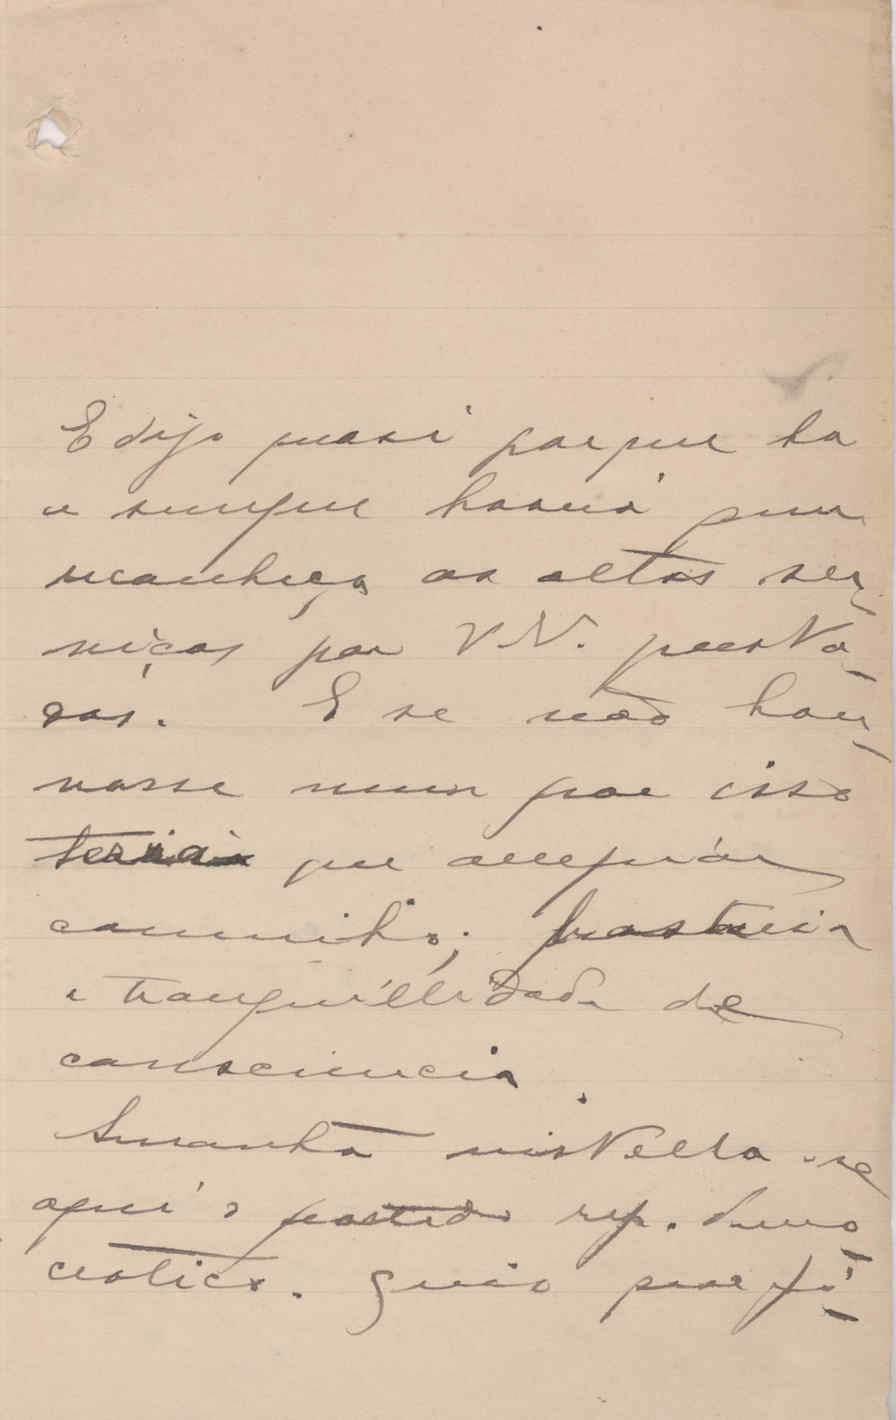 E digo quasi porque ha
e sempre haverá quem
reconheça os altos ser-
viços por V. N. presta-
dos. E se não hou-
vesse nem por isso
teria que arrepiar
caminho; bastaria
a tranquillidade de
consciencia.
Amanhã installa-se
aqui o partido rep. demo-
cratico. Quis por fo-